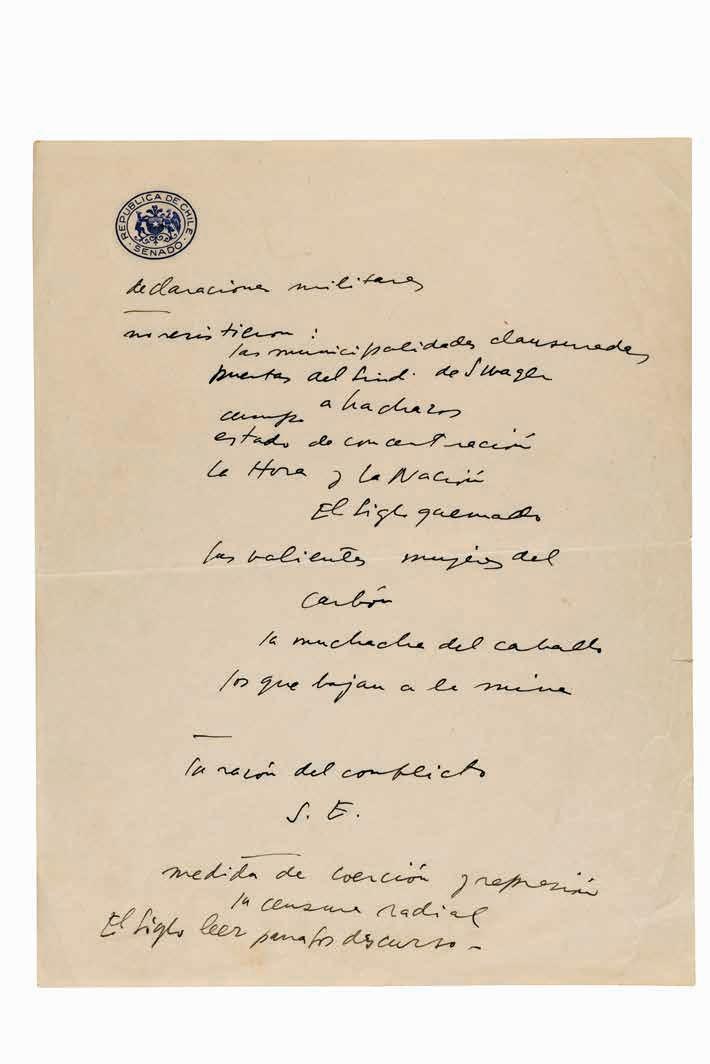 REPUBLICA DE CHILE
SENADO
declaraciones militares
no resistieron :
las municipalidades clausuradas
puertas del Sind. de Swager
a hachazos
estado de concentración
la Hora y la Nación
El Siglo quemado
las valientes mujeres del
carbón
la muchacha del caballo
los que bajan a la mina
la razón del conflicto
S. E.
medida de coerción y represión
la censura radial
El Siglo leer parrafos discurso –